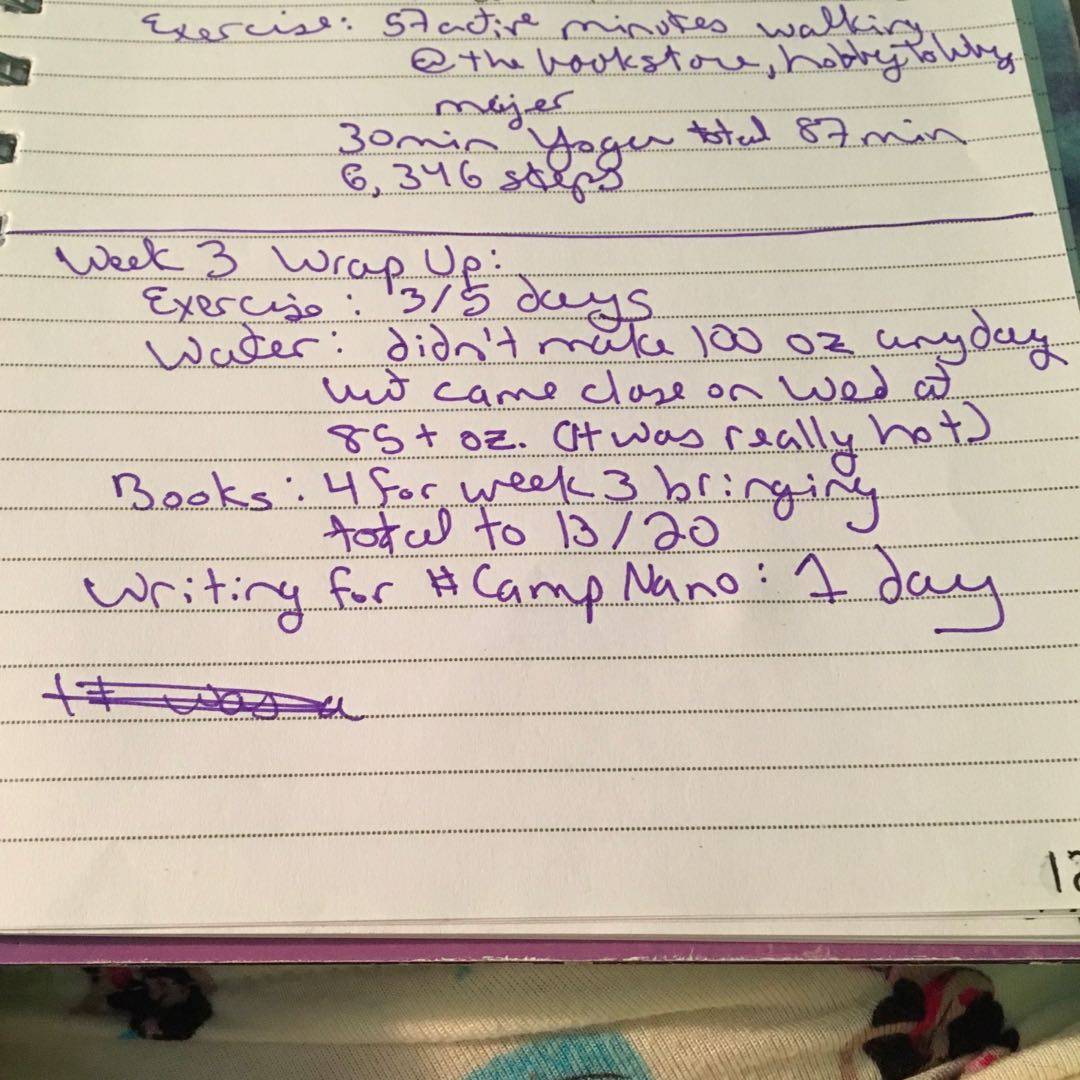 Exercise: 57 active minutes walking
@ the bookstore, hobby lobby,
meijer
30 min Yoga total 87 min
6,346 steps
Week 3 Wrap Up:
Exercise: 3/5 days
Water: didn't make 100 oz anyday
but came close on Wed at
85+ oz. (It was really hot)
Books: 4 for week 3 bringing
total to 13/20
Writing for #CampNano: 1 day
It was a